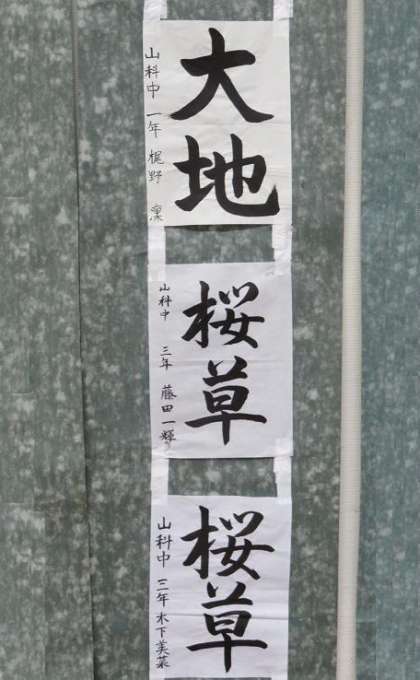 大地
山科中 一年 梶野 凜
桜草
山科中 三年 藤田一輝
桜草
山科中 三年 木下美菜